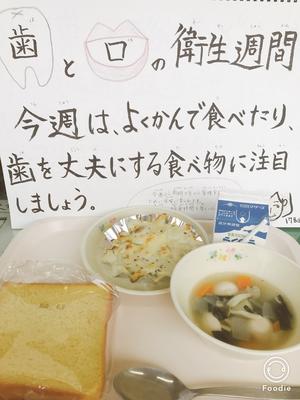 歯と口の衛生週間
今週は、よくかんで食べたり、
歯を丈夫にする食べ物に注目
しましょう。
Foodie